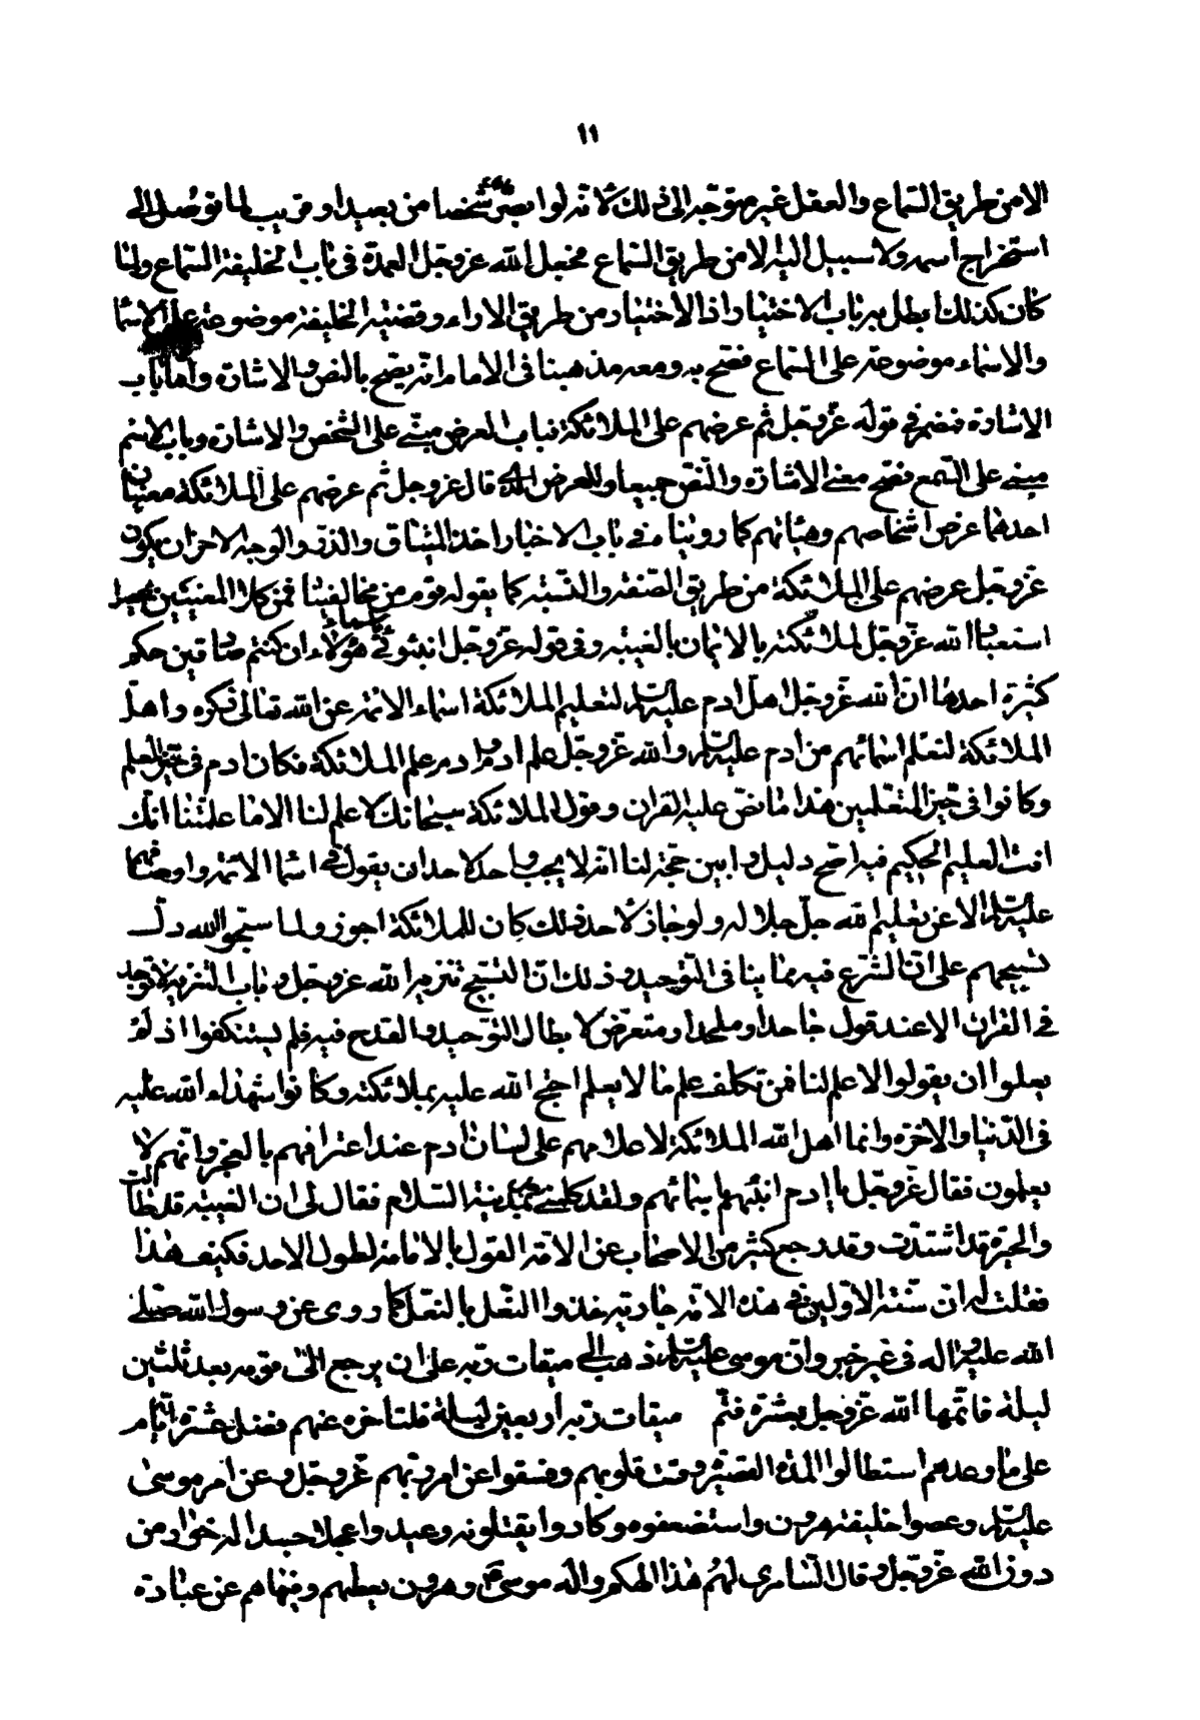 ١١
الا من طريق السماع والعقل غير متوجه الى ذلك لأنه لو ابصر شخصا من بعيد او قريب لما توصل الى
استخراج اسمه ولا سبيل اليه الا من طريق السماع فجعل الله عز وجل العمدة في باب الخليفة السماع ولما
كان كذلك ابطل به باب الاختيار اذ الاختيار من طريق الاراء وقضية الخليفة موضوعة على الاسماء
والاسماء موضوعة على السماع فصح به ومعه مذهبنا في الامام انه يصح بالنص والاشارة واما باب
الاشارة فمضمر في قوله عز وجل ثم عرضهم على الملائكة فباب العرض مبني على الشخص والاشارة وباب الاسم
مبني على السمع فصح معنى الاشارة والنص جميعا وللعرض الذي قال عز وجل ثم عرضهم على الملائكة معنيان
احدهما عرض اشخاصهم وهيئاتهم كما روينا في باب الاخبار اخذ الميثاق والذر والوجه الاخر ان يكون
عز وجل عرضهم على الملائكة من طريق الصفة والنسبة كما يقوله قوم من مخالفينا فمن كلا المعنيين يحصل
استعباد الله عز وجل لملائكته بالايمان بالغيبة وفي قوله عز وجل انبئوني باسماء هؤلاء ان كنتم صادقين حكم
كثيرة احدها ان الله عز وجل اهل ادم عليه السلام لتعليم الملائكة اسماء الائمة عن الله تعالى ذكره واهل
الملائكة لتعلم اسمائهم من ادم عليه السلام والله عز وجل علم ادم وادم علم الملائكة فكان ادم في حيز المعلم
وكانوا في حيز المتعلمين هذا ما نص عليه القران وقول الملائكة سبحانك لا علم لنا الا ما علمتنا انك
انت العليم الحكيم فيه اصح دليل وابين حجة لنا انه لا يجوز لاحد ان يقول في اسماء الائمة واوصافهم
عليهم السلام الا عن تعليم الله جل جلاله ولو جاز لأحد ذلك كان للملائكة اجوز ولما سبحوا الله دل
تسبيحهم على ان الشرع فيه مما ينافي التوحيد وذلك ان التسبيح تنزيه الله عز وجل وباب التنزيه لا توجد
في القران الا عند قول جاحد او ملحد او متعرض لابطال التوحيد والقدح فيه فلم يستنكفوا اذ لم
يعلموا ان يقولوا لا علم لنا فمن تكلف علم ما لا يعلم احتج الله عليه بملائكته وكانوا شهداء الله عليه
في الدنيا والاخرة وانما اهل الله الملائكة لاعلامهم على لسان ادم عند اعترافهم بالعجز وانهم لا
يعلمون فقال عز وجل يا ادم انبئهم باسمائهم ولقد كلمني بمدينة السلام فقال لي ان الغيبة قد طالت
والحيرة قد اشتدت وقد رجع كثير من الاصحاب عن الامة القول بالامامة لطول الامد فكيف هذا
فقلت له ان سنة الاولين في هذه الامة جارية حذو النعل بالنعل كما روى عن رسول الله صلى
الله عليه واله في غير خبر وان موسى عليه السلام ذهب الى ميقات ربه على ان يرجع الى قومه بعد ثلثين
ليلة فاتمها الله عز وجل بعشرة فتم ميقات ربه اربعين ليلة فلتاخره عنهم فضل عشرة ايام
على ما وعدهم استطالوا المدة القصيرة وقست قلوبهم وفسقوا عن امر ربهم عز وجل وعن امر موسى
عليه السلام وعصوا خليفته هرون واستضعفوه وكادوا يقتلونه وعبدوا عجلا جسدا له خوار من
دون الله عز وجل وقال السامري لهم هذا الهكم واله موسى وهرون يعظهم وينهاهم عن عبادة